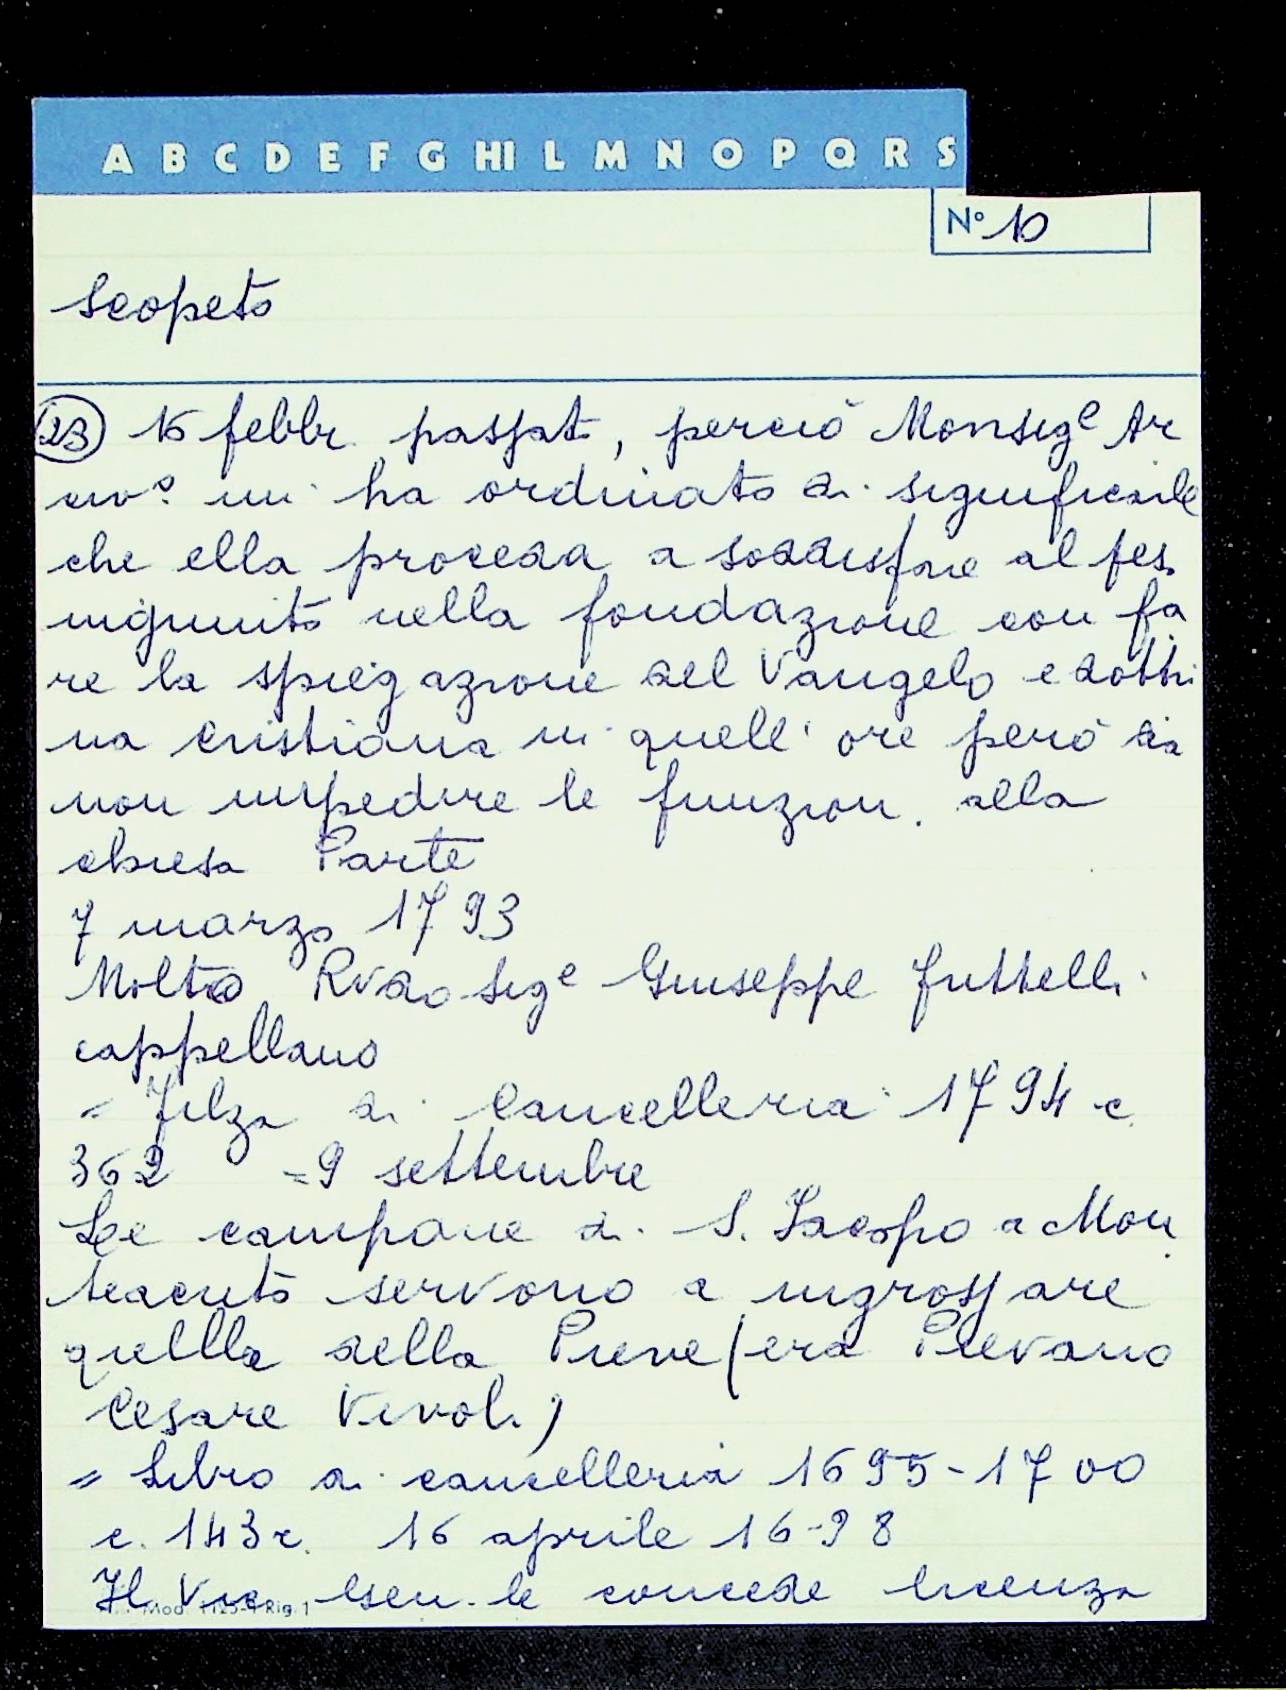 A B C D E F G HI L M N O P Q R S
N° 10
Scopeto
23 16 febbr. passato, perciò Monsigᵉ Ar
civ.º mi ha ordinato di significarle
che ella proceda a soddisfare al pes.
ingiunto nella fondazione con fa
re la spiegazione del Vangelo e dottri
na cristiana in quell'ore però da
non impedire le funzioni alla
chiesa Parte
7 marzo 1793
Molto Rvdo Sigᵉ Giuseppe
cappellano
= Filza di Cancelleria 1794 c.
362 = 9 settembre
Le campane di S. Jacopo a Mon
teacuto servono a ingrossare
quella della Pieve (era Pievano
Cesare Vivoli)
= Libro di cancelleria 1695-1700
c. 143r. 16 aprile 1698
Il Vic. Gen. le concede licenza
Mod. Rig. 1